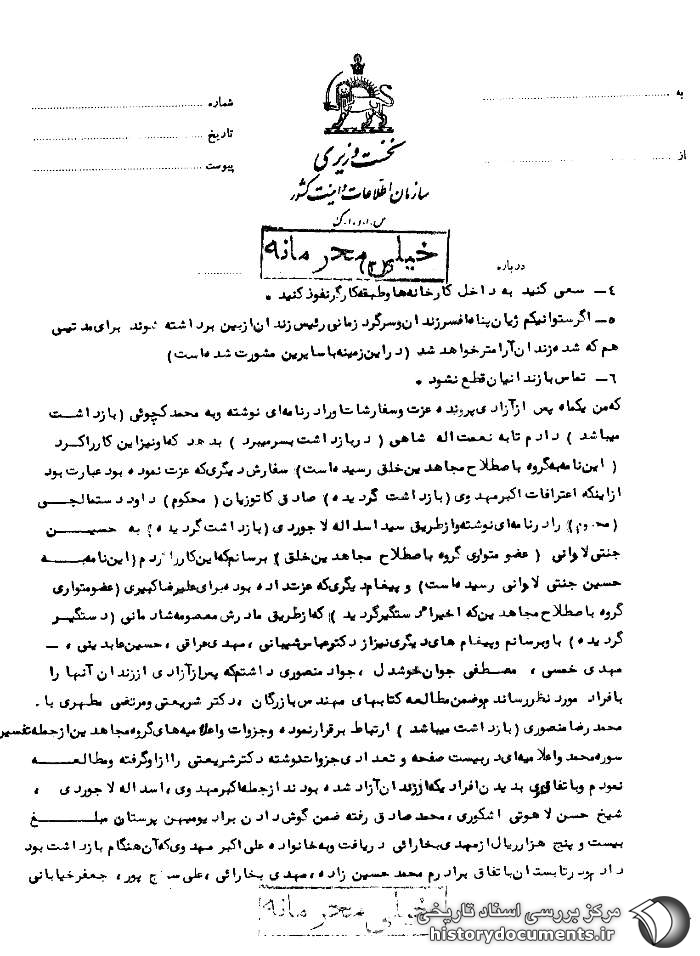 به
از
شماره
تاریخ
پیوست
نخست وزیری
سازمان اطلاعات و امنیت کشور
س.ا.و.ا.ک
خیلی محرمانه
درباره
٤ــ سعی کنید به داخل کارخانه‌ها و طبقه کارگر نفوذ کنید .
٥ــ اگر ستوانیکم ژیان پناه افسر زندان و سرگرد زمانی رئیس زندان از بین برداشته شوند برای مدتیی
هم که شده زندان آرامتر خواهد شد (در این زمینه با سایرین مشورت شده است)
٦ــ تماس با زندانیان قطع نشود .
که من یکماه پس از آزادی پرونده عزت و سفارشات او را در نامه‌ای نوشته و به محمد کچوئی (بازداشت
میباشد) دادم تا به نعمت اله شاهی (در بازداشت بسر میبرد) بدهد که او نیز این کار را کرد
(این نامه به گروه باصطلاح مجاهدین خلق رسیده است) سفارش دیگری که عزت نموده بود عبارت بود
از اینکه اعترافات اکبر مهدوی (بازداشت گردیده) صادق کاتوزیان (محکوم) داود دستمالچی
(محکوم) را در نامه‌ای نوشته و از طریق سید اسداله لاجوردی (بازداشت گردیده) به حسین
جنتی لاوانی (عضو متواری گروه باصطلاح مجاهدین خلق) برسانم که این کار را کردم (این نامه به
حسین جنتی لاوانی رسیده است) و پیغام دیگری که عزت داده بود برای علیرضا کبیری (عضو متواری
گروه باصطلاح مجاهدین که اخیرا دستگیر گردید) که از طریق مادرش معصومه شادمانی (دستگیر
گردیده) باو برسانم و پیغام های دیگری نیز از دکتر عباس شیبانی ، مهدی عراقی ، حسین عابدینی ، ــ
مهدی خمسی ، مصطفی جوان خوشدل ، جواد منصوری داشتم که پس از آزادی از زندان آنها را
بافراد مورد نظر رساندم و ضمن مطالعه کتابهای مهندس بازرگان ، دکتر شریعتی و مرتضی مطهری با .
محمد رضا منصوری (بازداشت میباشد) ارتباط برقرار نموده و جزوات و اعلامیه‌های گروه مجاهدین از جمله تفسیر
سوره محمد و اعلامیه‌ای در بیست صفحه و تعدادی جزوات نوشته دکتر شریعتی را از او گرفته و مطالعه
نمودم و باتفاق بدیدن افرادیکه از زندان آزاد شده بودند از جمله اکبر مهدوی ، اسداله لاجوردی ،
شیخ حسن لاهوتی اشکوری ، محمد صادق رفته ضمن گوش دادن برادیو میهن پرستان مبلغ
بیست و پنج هزار ریال از مهدی بخارائی دریافت و به خانواده علی اکبر مهدوی که آن هنگام بازداشت بود
دادم و در تابستان باتفاق برادرم محمد حسین زاده ، مهدی بخارائی ، علی پور ، جعفر خیابانی
خیلی محرمانه
مرکز بررسی اسناد تاریخی
historydocuments.ir